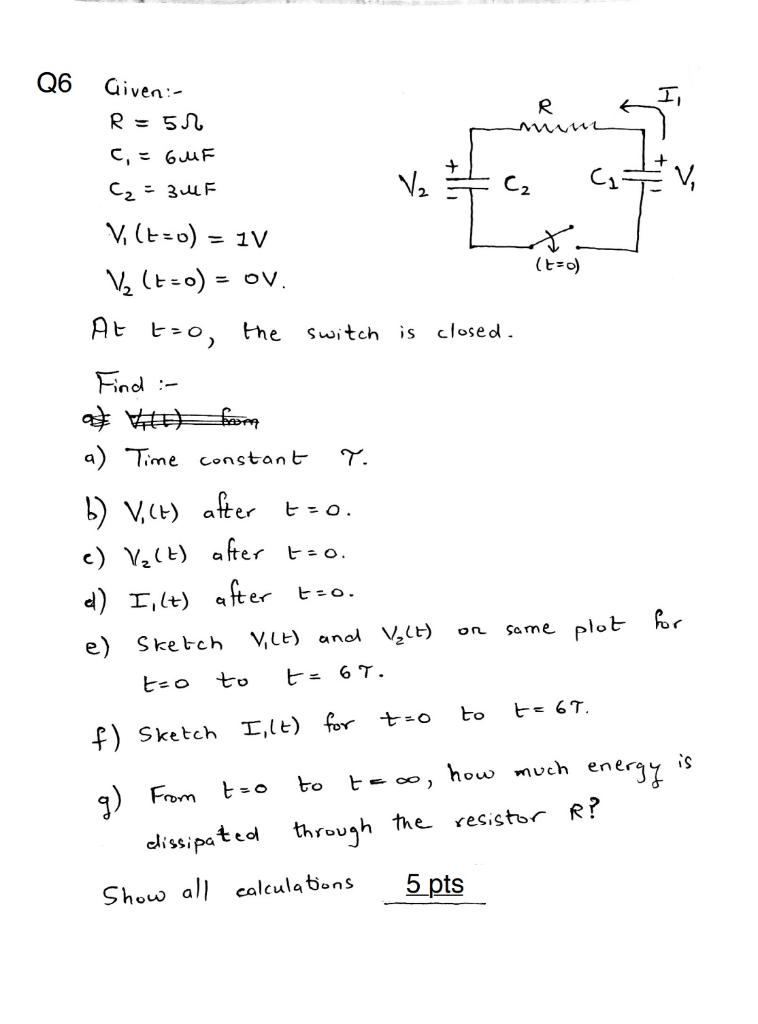 Q6 Given:-
R = 5Ω
C₁ = 6μF
C₂ = 3μF
V₁ (t=0) = 1V
V₂ (t=0) = 0V.
R
I₁
V₂
+
-
C₂
C₁
+
-
V₁
(t=0)
At t=0, the switch is closed.
Find :-
a) V₁(t) from
a) Time constant τ.
b) V₁(t) after t=0.
c) V₂(t) after t=0.
d) I₁(t) after t=0.
e) Sketch V₁(t) and V₂(t) on same plot for
t=0 to t= 6τ.
f) Sketch I₁(t) for t=0 to t= 6τ.
g) From t=0 to t=∞, how much energy is
dissipated through the resistor R?
Show all calculations 5 pts